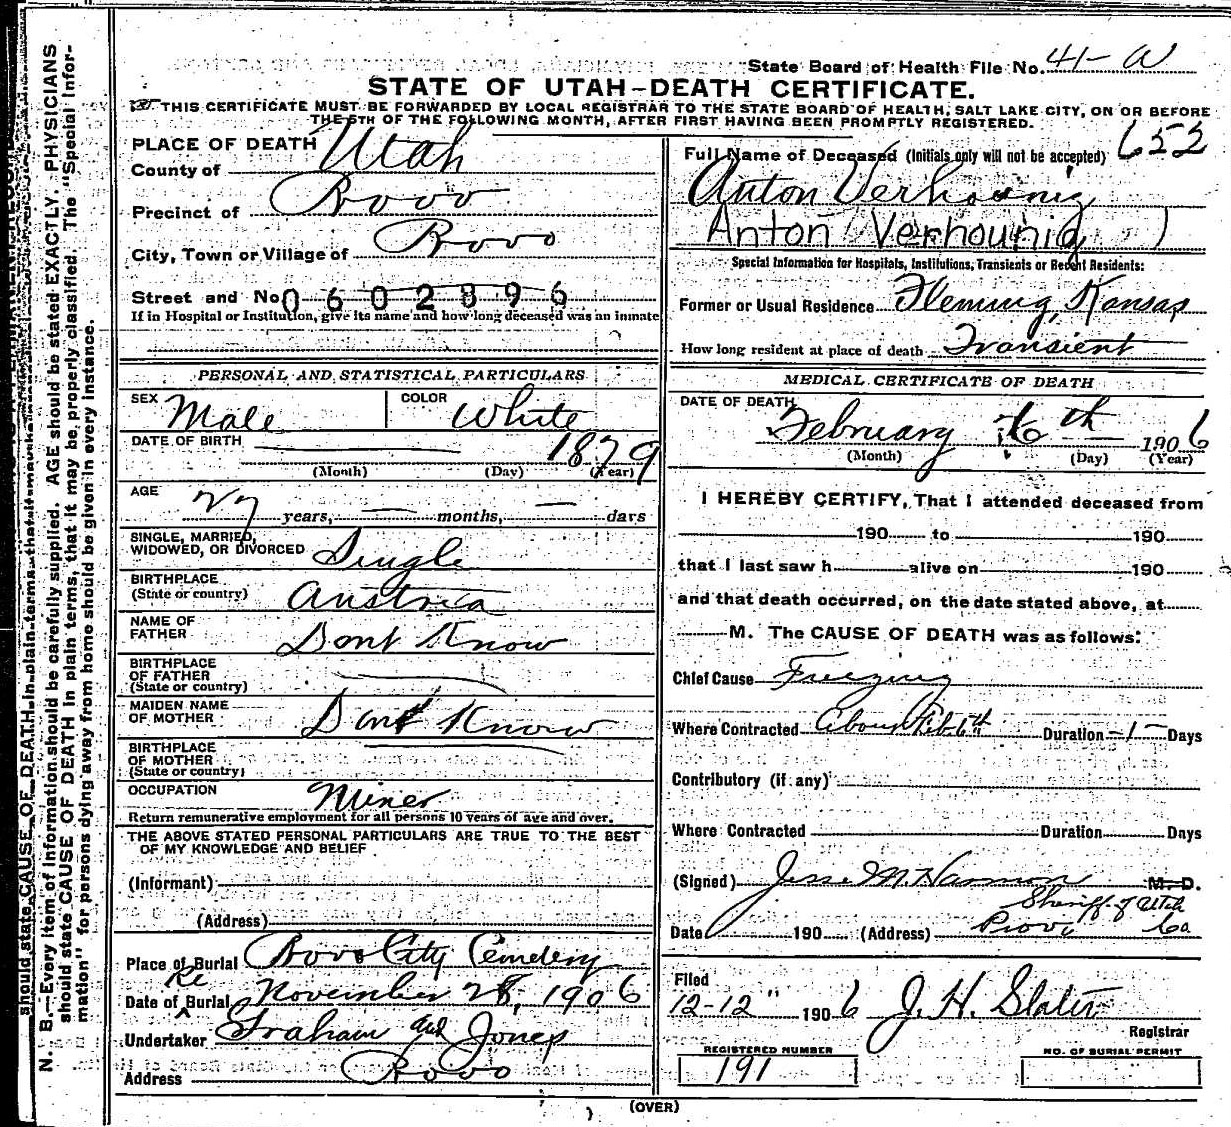 State Board of Health File No. 41-A
STATE OF UTAH-DEATH CERTIFICATE.
THIS CERTIFICATE MUST BE FORWARDED BY LOCAL REGISTRAR TO THE STATE BOARD OF HEALTH, SALT LAKE CITY, ON OR BEFORE
THE 5TH OF THE FOLLOWING MONTH, AFTER FIRST HAVING BEEN PROMPTLY REGISTERED.
PLACE OF DEATH
County of Utah
Precinct of Provo
City, Town or Village of Provo
Street and No. 0602896
If in Hospital or Institution, give its name and how long deceased was an inmate
PERSONAL AND STATISTICAL PARTICULARS
SEX Male COLOR White
DATE OF BIRTH 1879
(Month) (Day) (Year)
AGE 27 years, — months, — days
SINGLE, MARRIED,
WIDOWED, OR DIVORCED Single
BIRTHPLACE
(State or country) Austria
NAME OF
FATHER Dont Know
BIRTHPLACE
OF FATHER
(State or country)
MAIDEN NAME
OF MOTHER Dont Know
BIRTHPLACE
OF MOTHER
(State or country)
OCCUPATION Miner
Return remunerative employment for all persons 10 years of age and over.
THE ABOVE STATED PERSONAL PARTICULARS ARE TRUE TO THE BEST
OF MY KNOWLEDGE AND BELIEF
(Informant)
(Address)
Place of Burial Provo City Cemetery
Date of Re Burial November 28, 1906
Undertaker Graham and Jones
Address Provo
653
Full Name of Deceased (Initials only will not be accepted)
Anton Verhounig
Anton Verhounig )
Special Information for Hospitals, Institutions, Transients or Recent Residents:
Former or Usual Residence Fleming, Kansas
How long resident at place of death Transient
MEDICAL CERTIFICATE OF DEATH
DATE OF DEATH
February 6th 1906
(Month) (Day) (Year)
I HEREBY CERTIFY, That I attended deceased from
190 to 190
that I last saw h alive on 190
and that death occurred, on the date stated above, at
M. The CAUSE OF DEATH was as follows:
Chief Cause Freezing
Where Contracted About Feb 6th Duration -1- Days
Contributory (if any)
Where Contracted Duration Days
(Signed) Jesse M. Harmon M. D.
Sheriff of Utah
Date 190 (Address) Provo Co
Filed
12-12" 1906 J. H. Slater
Registrar
REGISTERED NUMBER
191
NO. OF BURIAL PERMIT
(OVER)
N. B.—Every item of information should be carefully supplied. AGE should be stated EXACTLY. PHYSICIANS
should state CAUSE OF DEATH in plain terms, that it may be properly classified. The "Special Infor-
mation" for persons dying away from home should be given in every instance.
should state CAUSE OF DEATH in plain terms, that it may